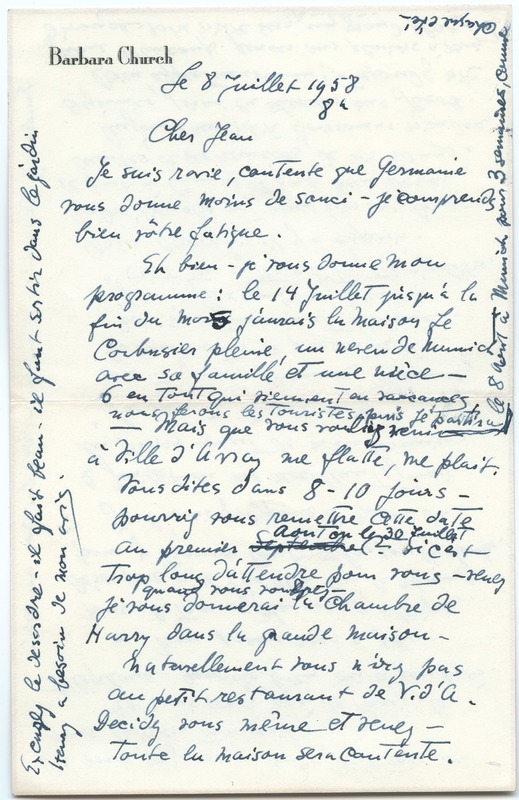 Barbara Church
Le 8 Juillet 1958
8h
Cher Jean
Je suis ravie, contente que Germaine
vous donne moins de souci - je comprends
bien vôtre fatigue.
Eh bien - je vous donne mon
programme : le 14 Juillet jusqu'à la
fin du mois j'aurais la maison Le
Corbusier pleine, un neveu de Munich
avec sa famille et une nièce -
6 en tout qui viennent en vacances
nous ferons les touristes, puis je partirai
le 8 août à Munich pour 3 semaines, comme
chaque été -
— Mais que vous vouliez venir
à Ville d'Avray me flatte, me plait.
Vous dites dans 8-10 jours -
pourriez vous remettre cette date
au premier Septembre
Août ou le 30 Juillet
si c'est
trop long d'attendre pour vous - venez
quand vous voudrez -
je vous donnerai la chambre de
Harry dans la grande maison -
Naturellement vous n'irez pas
au petit restaurant de V. d'A.
Decidez vous même et venez -
toute la maison sera contente.
Excusez le desordre - il fait beau - il faut sortir dans le jardin
a besoin de mon avis.